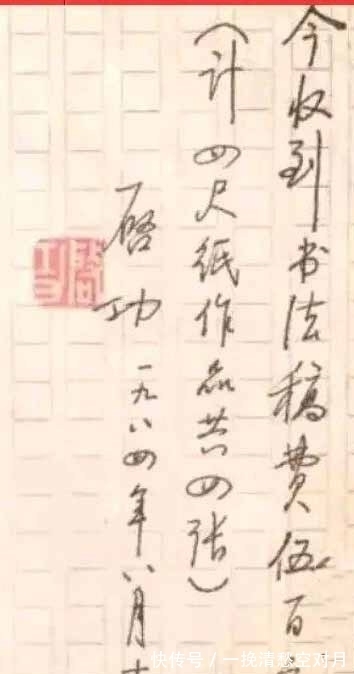 今收到书法稿费伍百
（计四尺纸作品共四张）
启功 一九八四年八月
启功
快传号／一挽清愁空对月